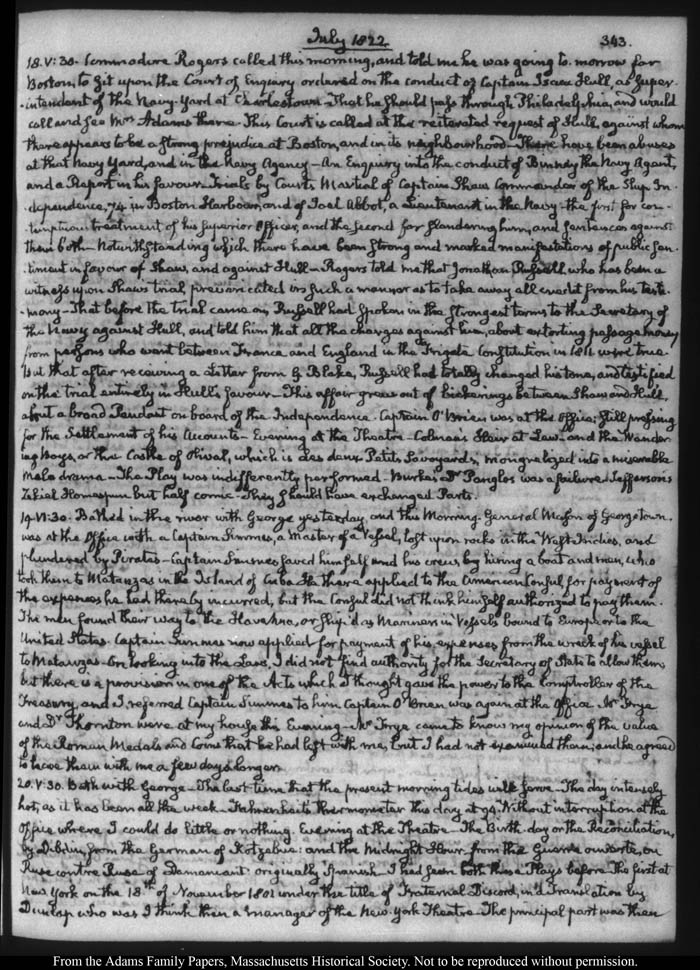 July 1822
343.
18. V:30. Commodore Rogers called this morning, and told me he was going to-morrow for
Boston, to sit upon the Court of Enquiry ordered on the conduct of Captain Isaac Hull, as Super-
-intendent of the Navy-Yard at Charlestown—That he should pass through Philadelphia, and would
call and see Mrs. Adams there. This Court is called at the reiterated request of Hull, against whom
there appears to be a strong prejudice at Boston, and in its neighbourhood—There have been abuses
at that Navy Yard, and in the Navy Agency—An Enquiry into the conduct of Binney the Navy Agent,
and a Report in his favour—Trials by Courts Martial of Captain Shaw Commander of the Ship In-
-dependence, 74 in Boston Harbour, and of Joel Abbot, a Lieutenant in the Navy—the first for con-
-temptuous treatment of his Superior Officer, and the second for slandering him, and Sentences against
them both—Notwithstanding which there have been strong and marked manifestations of public sen-
-timent in favour of Shaw, and against Hull—Rogers told me that Jonathan Russell, who has been a
witness upon Shaw's trial, prevaricated in such a manner as to take away all credit from his testi-
-mony—That before the trial came on, Russell had spoken in the strongest terms to the Secretary of
the Navy against Hull, and told him that all the charges against him, about extorting passage money
from persons who went between France and England in the Frigate Constitution in 1811 were true
But that after receiving a letter from G. Blake, Russell had totally changed his tone, and testified
on the trial entirely in Hull's favour—This affair grew out of bickerings between Shaw and Hull,
about a broad Pendant on board of the Independence. Captain O'Brien was at the Office; still pressing
for the Settlement of his Accounts—Evening at the Theatre—Colman's Heir at Law—and the Wander-
ing Boys, or the Castle of Olival, which is des deux Petits Savoyards, mongrelized into a miserable
Melo drama—The Play was indifferently performed—Burke's Dr. Pangloss was a failure. Jefferson's
Zekiel Homespun but half comic—They should have exchanged Parts.
19. VI:30. Bathed in the river with George yesterday, and this Morning. General Mason of Georgetown
was at the Office with a Captain Simmes, a Master of a Vessel, lost upon rocks in the West Indies, and
plundered by Pirates—Captain Simmes saved himself and his crew, by hiring a boat and men, who
took them to Matanzas in the Island of Cuba. He there applied to the American Consul, for payment of
the expenses he had thereby incurred, but the Consul did not think himself authorized to pay them.
The men found their way to the Havanna, or ship'd as Mariners in Vessels bound to Europe or to the
United States. Captain Simmes now applied for payment of his expenses from the wreck of his vessel
to Matanzas—On looking into the Laws, I did not find authority for the Secretary of State to allow them,
but there is a provision in one of the Acts which I thought gave the power to the Comptroller of the
Treasury, and I referred Captain Simmes to him. Captain O'Brien was again at the Office. Mr. Frye
and Dr. Thornton were at my house this Evening—Mr. Frye came to know my opinion of the value
of the Roman Medals and Coins that he had left with me, but I had not examined them; and he agreed
to leave them with me a few days longer.
20. V:30. Bath with George—The last time that the present morning tides will serve—The day intensely
hot, as it has been all the week—Fahrenheit's thermometer this day at 94. Without interruption at the
Office where I could do little or nothing. Evening at the Theatre—The Birth-day or the Reconciliation,
by Dibdin, from the German of Kotzebue: and the Midnight Hour, from the Guerre ouverte, ou
Ruse contre Ruse of Dumaniant: originally Spanish. I had seen both these Plays before. The first at
New York on the 18th of November 1801 under the title of Fraternal Discord, in a Translation by
Dunlap who was I think then a manager of the New-York Theatre—The principal part was then
From the Adams Family Papers, Massachusetts Historical Society. Not to be reproduced without permission.